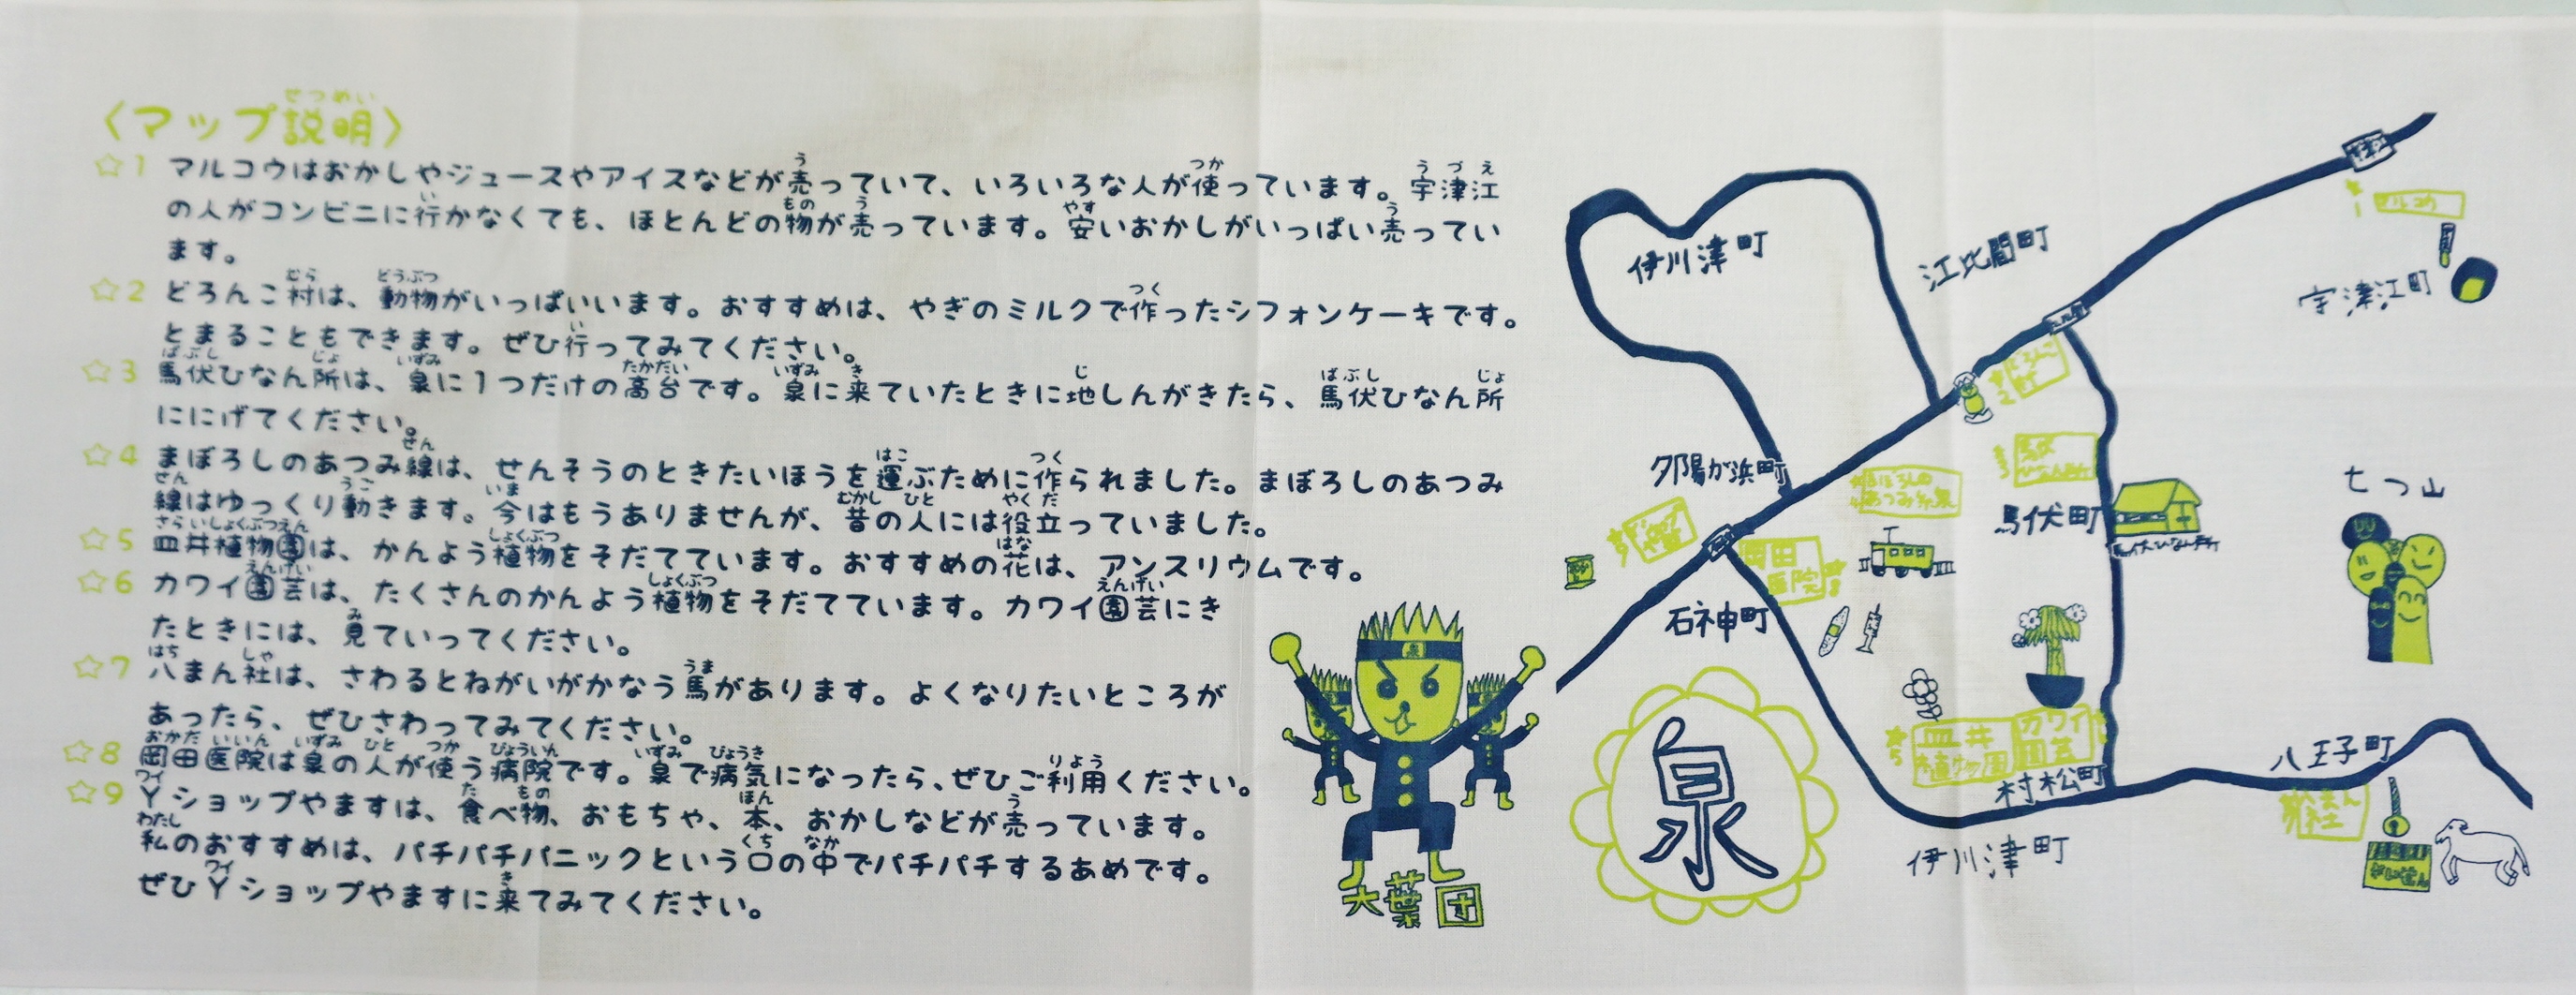 〈マップ説明〉
☆1 マルコウはおかしやジュースやアイスなどが売っていて、いろいろな人が使っています。宇津江
の人がコンビニに行かなくても、ほとんどの物が売っています。安いおかしがいっぱい売ってい
ます。
☆2 どろんこ村は、動物がいっぱいいます。おすすめは、やぎのミルクで作ったシフォンケーキです。
とまることもできます。ぜひ行ってみてください。
☆3 馬伏ひなん所は、泉に1つだけの高台です。泉に来ていたときに地しんがきたら、馬伏ひなん所
ににげてください。
☆4 まぼろしのあつみ線は、せんそうのときたいほうを運ぶために作られました。まぼろしのあつみ
線はゆっくり動きます。今はもうありませんが、昔の人には役立っていました。
☆5 皿井植物園は、かんよう植物をそだてています。おすすめの花は、アンスリウムです。
☆6 カワイ園芸は、たくさんのかんよう植物をそだてています。カワイ園芸にき
たときには、見ていってください。
☆7 八まん社は、さわるとねがいがかなう馬があります。よくなりたいところが
あったら、ぜひさわってみてください。
☆8 岡田医院は泉の人が使う病院です。泉で病気になったら、ぜひご利用ください。
☆9 Yショップやますは、食べ物、おもちゃ、本、おかしなどが売っています。
私のおすすめは、パチパチパニックという口の中でパチパチするあめです。
ぜひYショップやますに来てみてください。
大葉団
泉
伊川津町
江比間町
☆1
マルコウ
宇津江町
☆2
どろんこ
村
夕陽が浜町
まぼろしの
あつみ線
☆3
馬伏
ひなん所
馬伏町
馬伏ひなん所
七つ山
岡田
医院
☆8
石神町
☆5
皿井
植物園
カワイ
園芸
村松町
伊川津町
八王子町
八まん
社
さいせん